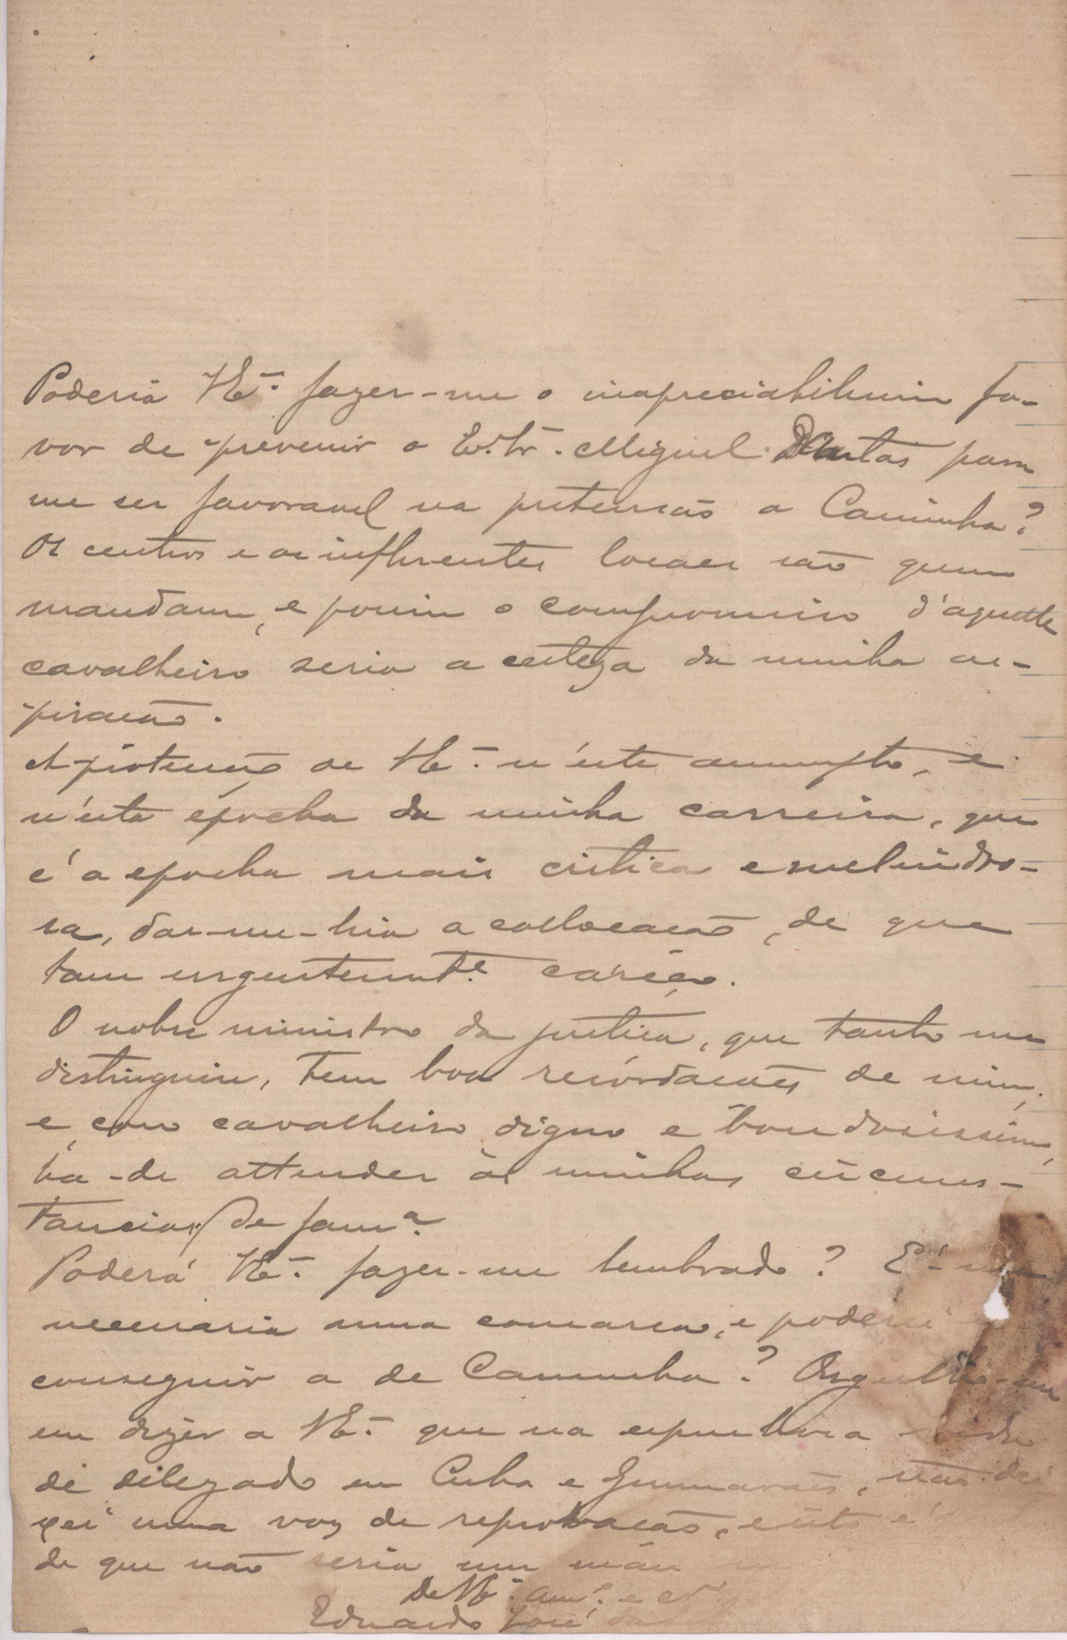 Poderia V Ex.ª fazer-me o inapreciabilissimo fa-
vor de prevenir o Ex. Sr. Miguel Dantas para
me ser favoravel na pretensão a Caminha?
Os centros e as influentes locaes são quem
mandam, e porim o compromisso d'aquelle
cavalheiro seria a certeza da minha as-
piração.
A protecção de V Ex.ª n'éste assumpto, e
n'ésta épocha da minha carreira, que
é a epocha mais critica e melindro-
sa, dar-me-hia a collocação, de que
tam urgentemt.e caréço.
O nobre ministro da justiça, que tanto me
distinguiu, tem boas recórdações de mim,
e como cavalheiro digno e bondosissimo,
ha-de attender ás minhas circums-
tancias de fam.ª
Poderá V Ex.ª fazer-me lembrado? É-me
necessaria uma comarca, e poderei
conseguir a de Caminha? Orgulho-me
em dizêr a V Ex.ª que na espinhosa vida
de délegado em Cuba e Guimarães, não dei-
xei uma voz de reprovação, e isto é
de que não seria um máu
De V Ex.ª am.º e cr.º
Eduardo José da